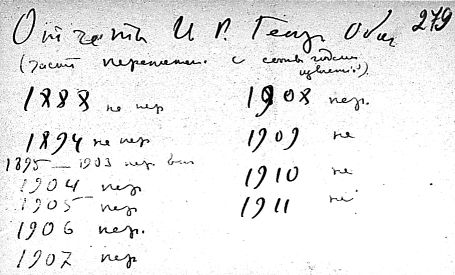 Отчеты И. Р. Геогр. Общ. 279
(часть переплет. с
1888 не пер
1894 не пер
1895—1903 пер. вм
1904 пер
1905 пер
1906 пер.
1907 пер
1908 пер.
1909 не
1910 не
1911 не